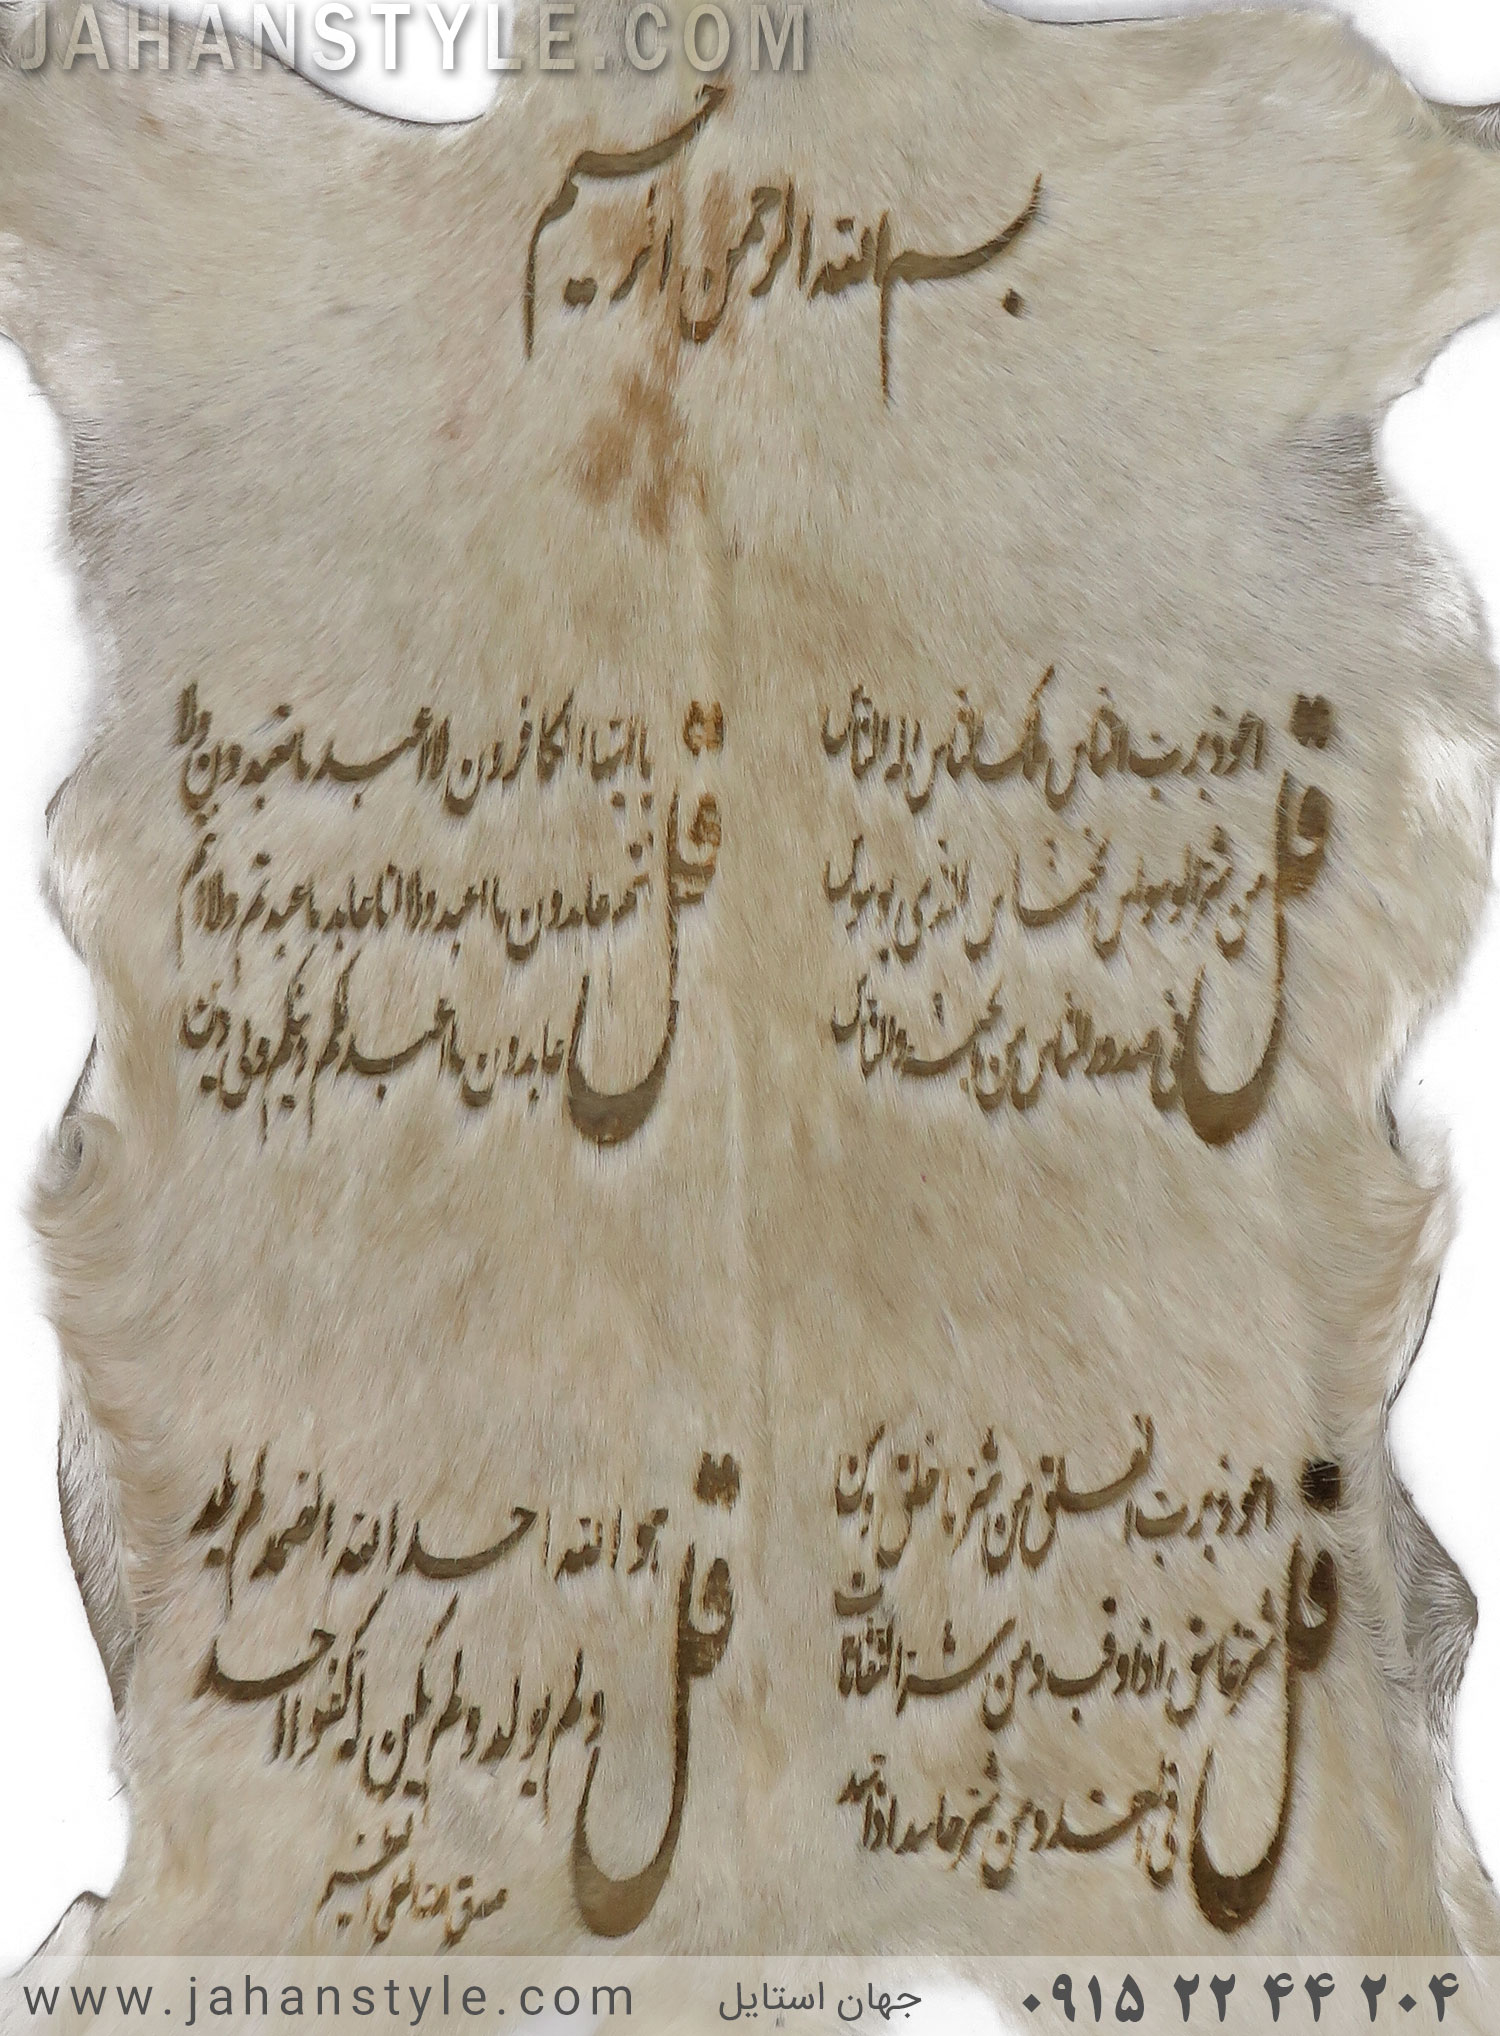 JAHANSTYLE.COM
بسم الله الرحمن الرحیم
قل اعوذ برب الناس ملک الناس اله الناس
من شر الوسواس الخناس الذی یوسوس
فی صدور الناس من الجنة و الناس
قل یا ایها الکافرون لا اعبد ما تعبدون ولا
انتم عابدون ما اعبد ولا انا عابد ما عبدتم ولا انتم
عابدون ما اعبد لکم دینکم ولی دین
قل اعوذ برب الفلق من شر ما خلق و من
شر غاسق اذا وقب و من شر النفاثات
فی العقد و من شر حاسد اذا حسد
قل هو الله احد الله الصمد لم یلد
ولم یولد ولم یکن له کفوا احد
صدق الله العلی العظیم
www.jahanstyle.com جهان استایل ۰۹۱۵ ۲۲ ۴۴ ۲۰۴